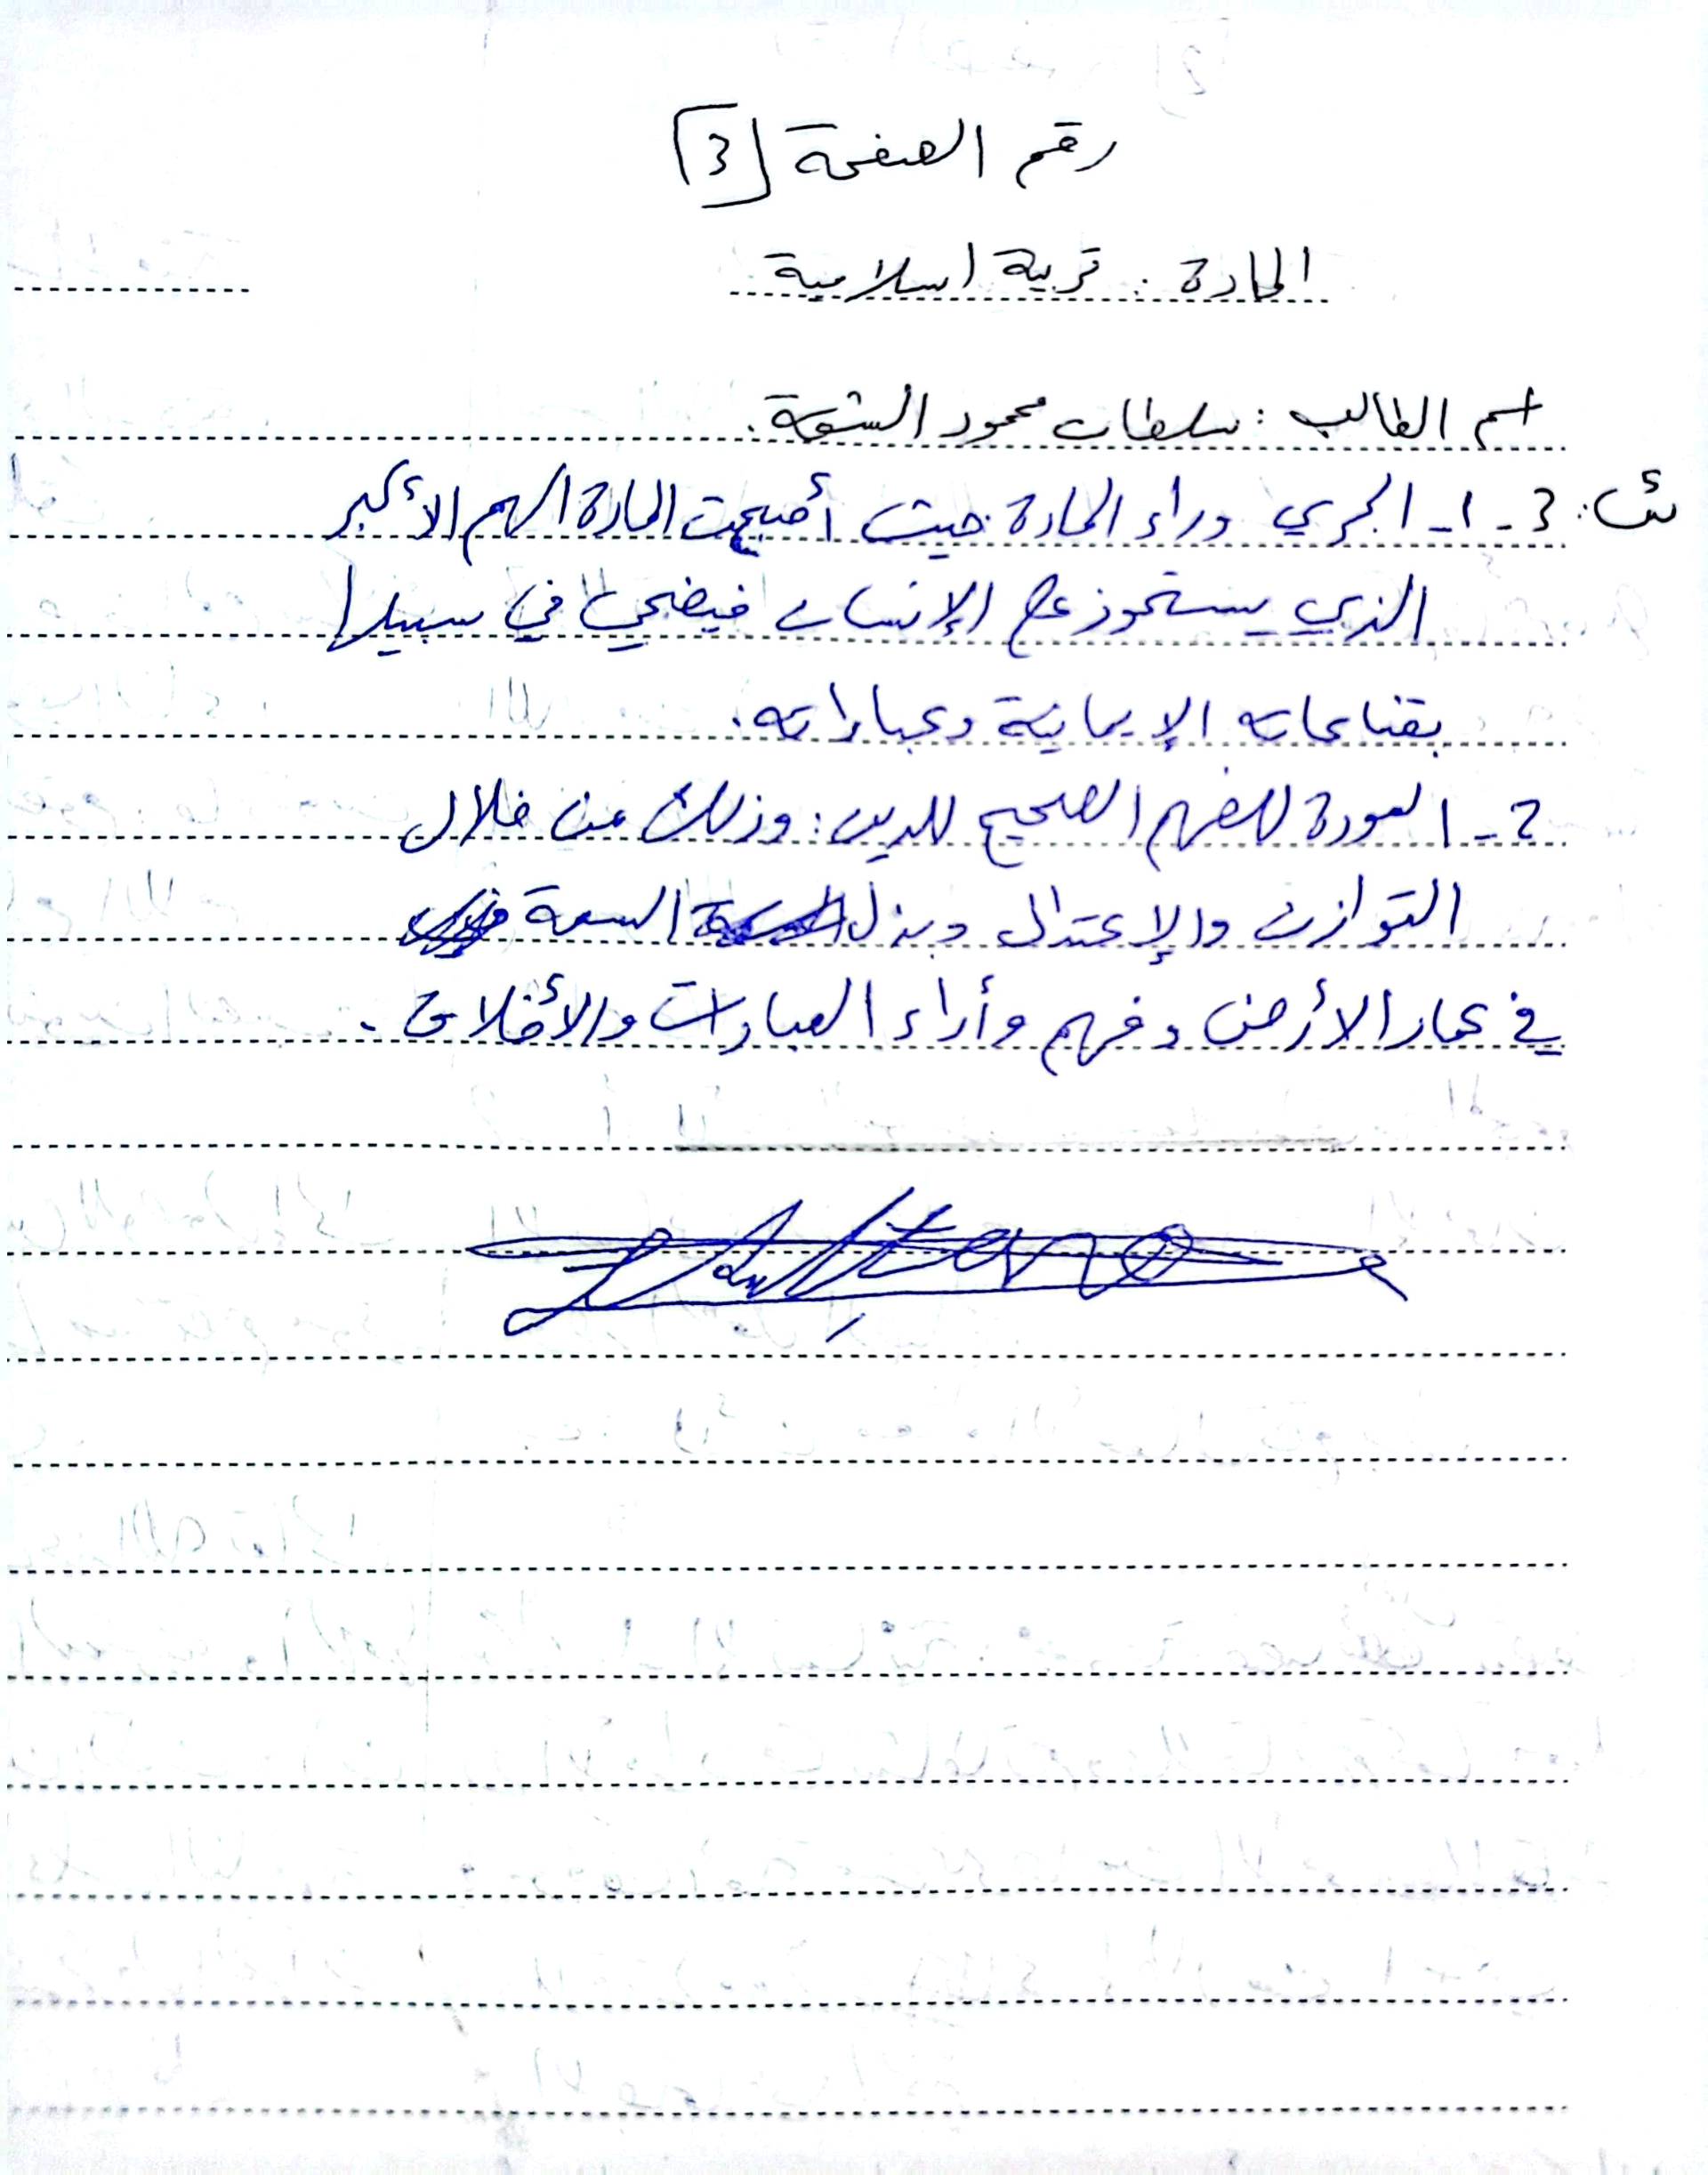 رقم الصفحة [3]
المادة: تربية اسلامية
اسم الطالب: سلطان محمود الشمعة.
ث: 3 - 1 - الجري وراء المادة حيث أصبحت المادة الهم الأكبر
الذي يستحوذ على الإنسان فيضحي في سبيلها
بقناعاته الإيمانية وعباداته.
2 - العودة للفهم الصحيح للدين: وذلك من خلال
التوازن والإعتدال وبذل السعة
في عمار الأرض وفهم وأداء العبادات والأخلاق.